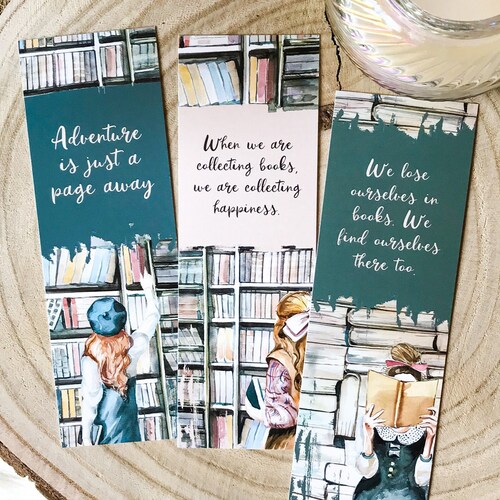 Adventure
is just a
page away
When we are
collecting books,
we are collecting
happiness.
We lose
ourselves in
books. We
find ourselves
there too.